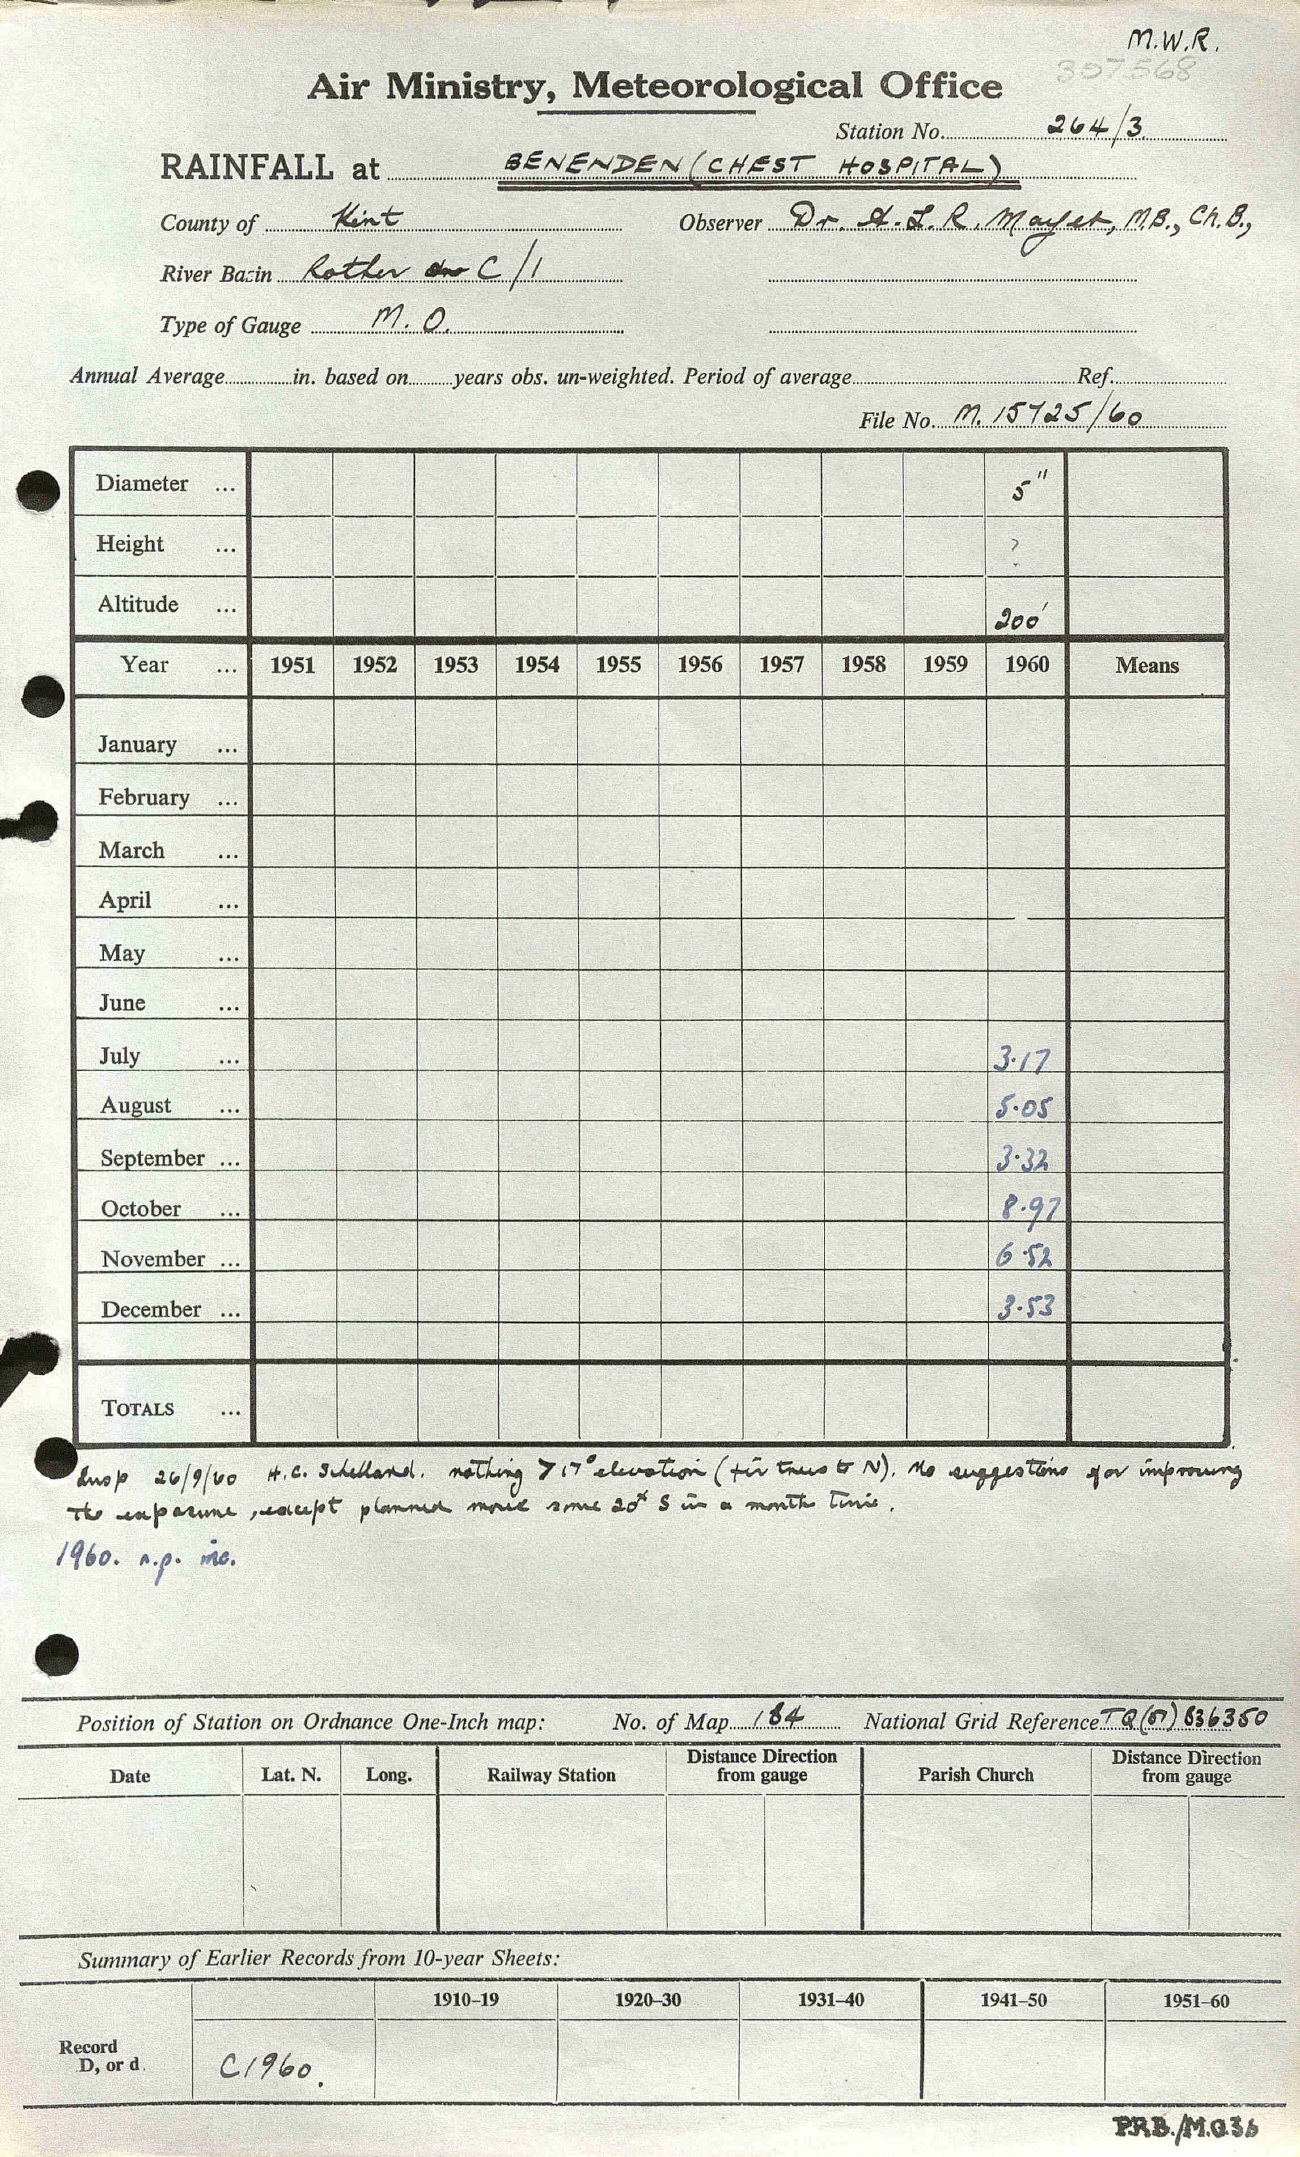 M.W.R.
307568
Air Ministry, Meteorological Office
Station No. 264/3
RAINFALL at BENENDEN (CHEST HOSPITAL)
County of Kent Observer Dr. A. L. R. Mayet, M.B., Ch.B.,
River Basin Rother C/1
Type of Gauge M. O.
Annual Average in. based on years obs. un-weighted. Period of average Ref.
File No. M. 15725/60
Diameter ... 5"
Height ... ?
Altitude ... 200'
Year ... 1951 1952 1953 1954 1955 1956 1957 1958 1959 1960 Means
January ...
February ...
March ...
April ...
May ...
June ...
July ... 3·17
August ... 5·05
September ... 3·32
October ... 8·97
November ... 6·52
December ... 3·53
TOTALS ...
Insp 26/9/60 H.C. Shelland. nothing > 17° elevation (fir trees to N). No suggestions for improving
the exposure, except planned move some 20x S in a months time.
1960. n.p. inc.
Position of Station on Ordnance One-Inch map: No. of Map 184 National Grid Reference TQ (51) 836350
Date Lat. N. Long. Railway Station Distance Direction from gauge Parish Church Distance Direction from gauge
Summary of Earlier Records from 10-year Sheets:
1910–19 1920–30 1931–40 1941–50 1951–60
Record
D, or d. C1960.
P.R.B./M.O.36